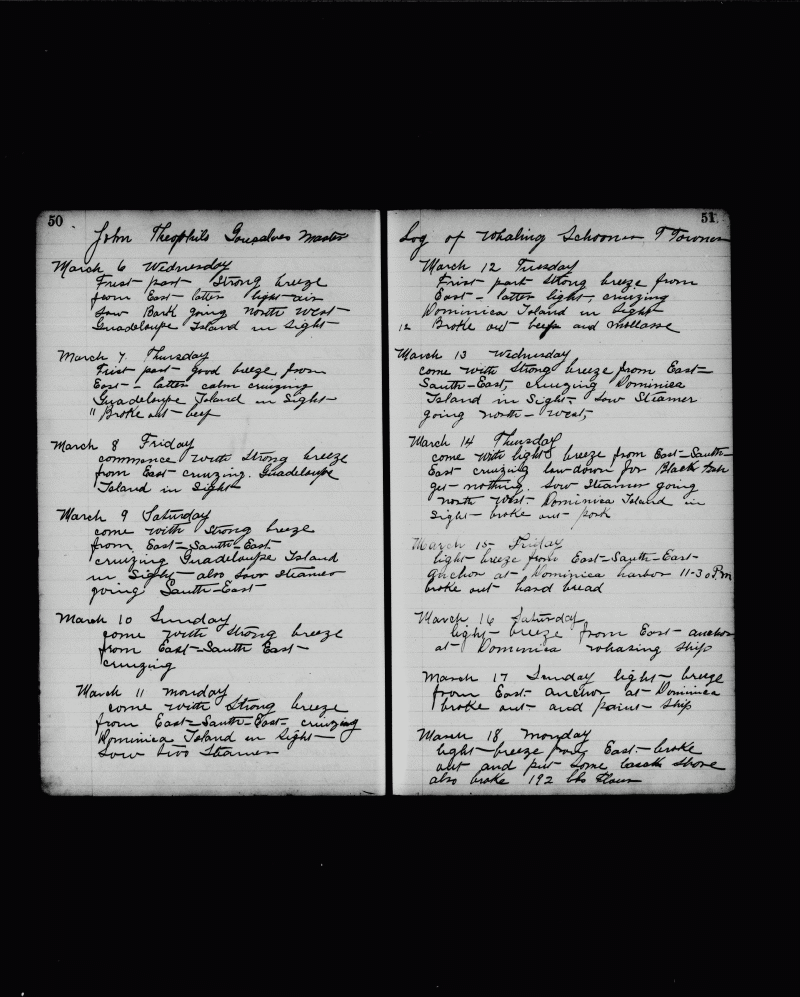 50
John Theophilo Gonsalves Master
March 6 Wednesday
First part Strong breeze
from East latter light air
Saw Bark going North West
Guadeloupe Island in Sight
March 7 Thursday
First part good breeze from
East - latter calm cruizing
Guadeloupe Island in Sight
" Broke out beef
March 8 Friday
commence with strong breeze
from East cruizing. Guadeloupe
Island in Sight
March 9 Saturday
come with Strong breeze
from East-South-East
cruizing Guadeloupe Island
in Sight also saw Steamer
going South-East
March 10 Sunday
come with strong breeze
from East-South East
cruizing
March 11 monday
come with Strong breeze
from East-South-East. cruizing
Dominica Island in Sight
saw two Steamer
51
Log of Whaling Schooner T Towner
March 12 Tuesday
First part Strong breeze from
East - latter light, cruizing
Dominica Island in Sight
12 Broke out beef and mollasse
March 13 Wednesday
come with Strong breeze from East=
South-East, cruizing Dominica
Island in Sight, saw Steamer
going north-west,
March 14 Thursday
come with light breeze from East-South-
East cruizing low down for Black fish
get nothing. saw Steamer going
north west. Dominica Island in
Sight broke out pork
March 15 Friday
light breeze from East-South-East
anchor at Dominica harbor 11-30 Pm
broke out hard bread
March 16 Saturday
light breeze from East anchor
at Dominica ship
March 17 Sunday light breeze
from East anchor at Dominica
broke out and paint ship
March 18 monday
light breeze from East broke
out and put some cask shore
also broke 192 bbs flour